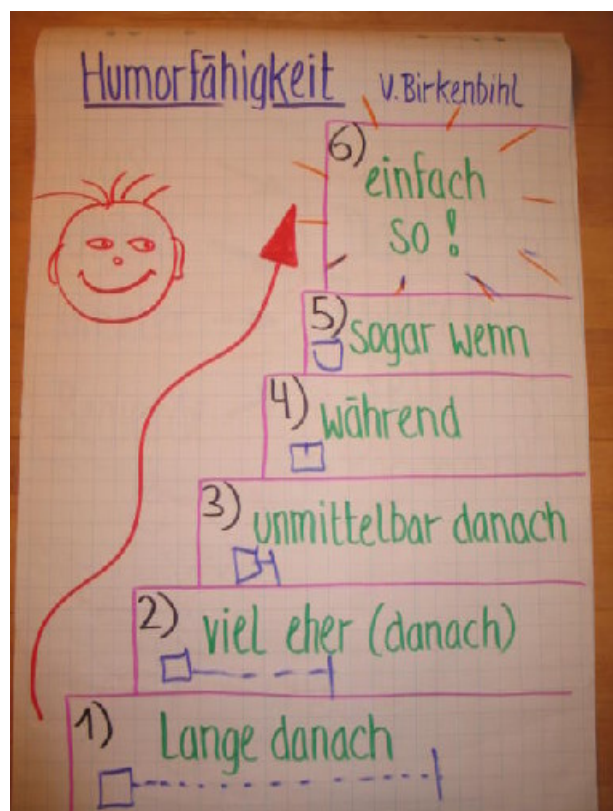 Humorfähigkeit V. Birkenbihl
6) einfach
so!
5) sogar wenn
4) während
3) unmittelbar danach
2) viel eher (danach)
1) Lange danach